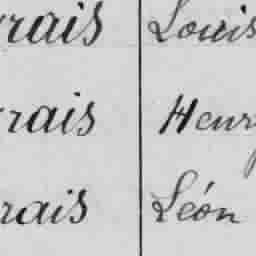 rais Louis
rais Henry
rais Léon